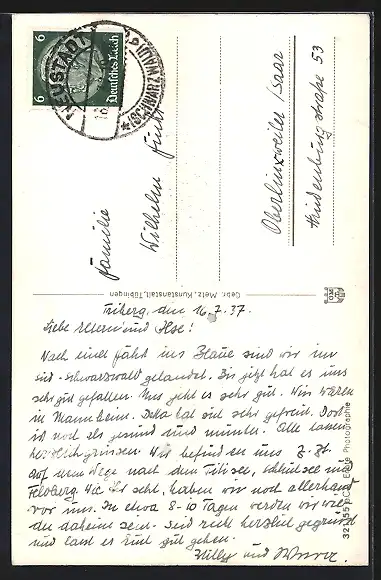 6 6
Deutsches Reich
NEUSTADT
(SCHWARZWALD)
Familie
Wilhelm
Oberlinxweiler /Saar
Hindenburgstraße 53
Gebr. Metz, Kunstanstalt, Tübingen
Triberg, den 16.7.37.
Liebe Eltern und Ilse!
Nach einer Fahrt ins Blaue sind wir im
Süd-Schwarzwald gelandet. Bis jetzt hat es uns
sehr gut gefallen. Uns geht es sehr gut. Wir waren
in Mannheim. hat sich sehr gefreut. Dort
ist noch alles gesund und munter. Alle lassen
herzlich grüssen. Wir befinden uns z. Zt.
auf dem Wege nach dem Titisee, Schluchsee und
Feldberg. Wie Ihr seht, haben wir noch allerhand
vor uns. In etwa 8-10 Tagen werden wir wieder
daheim sein. Seid recht herzlich gegrüsst
und lasst es Euch gut gehen.
Willy und
Echte Photographie